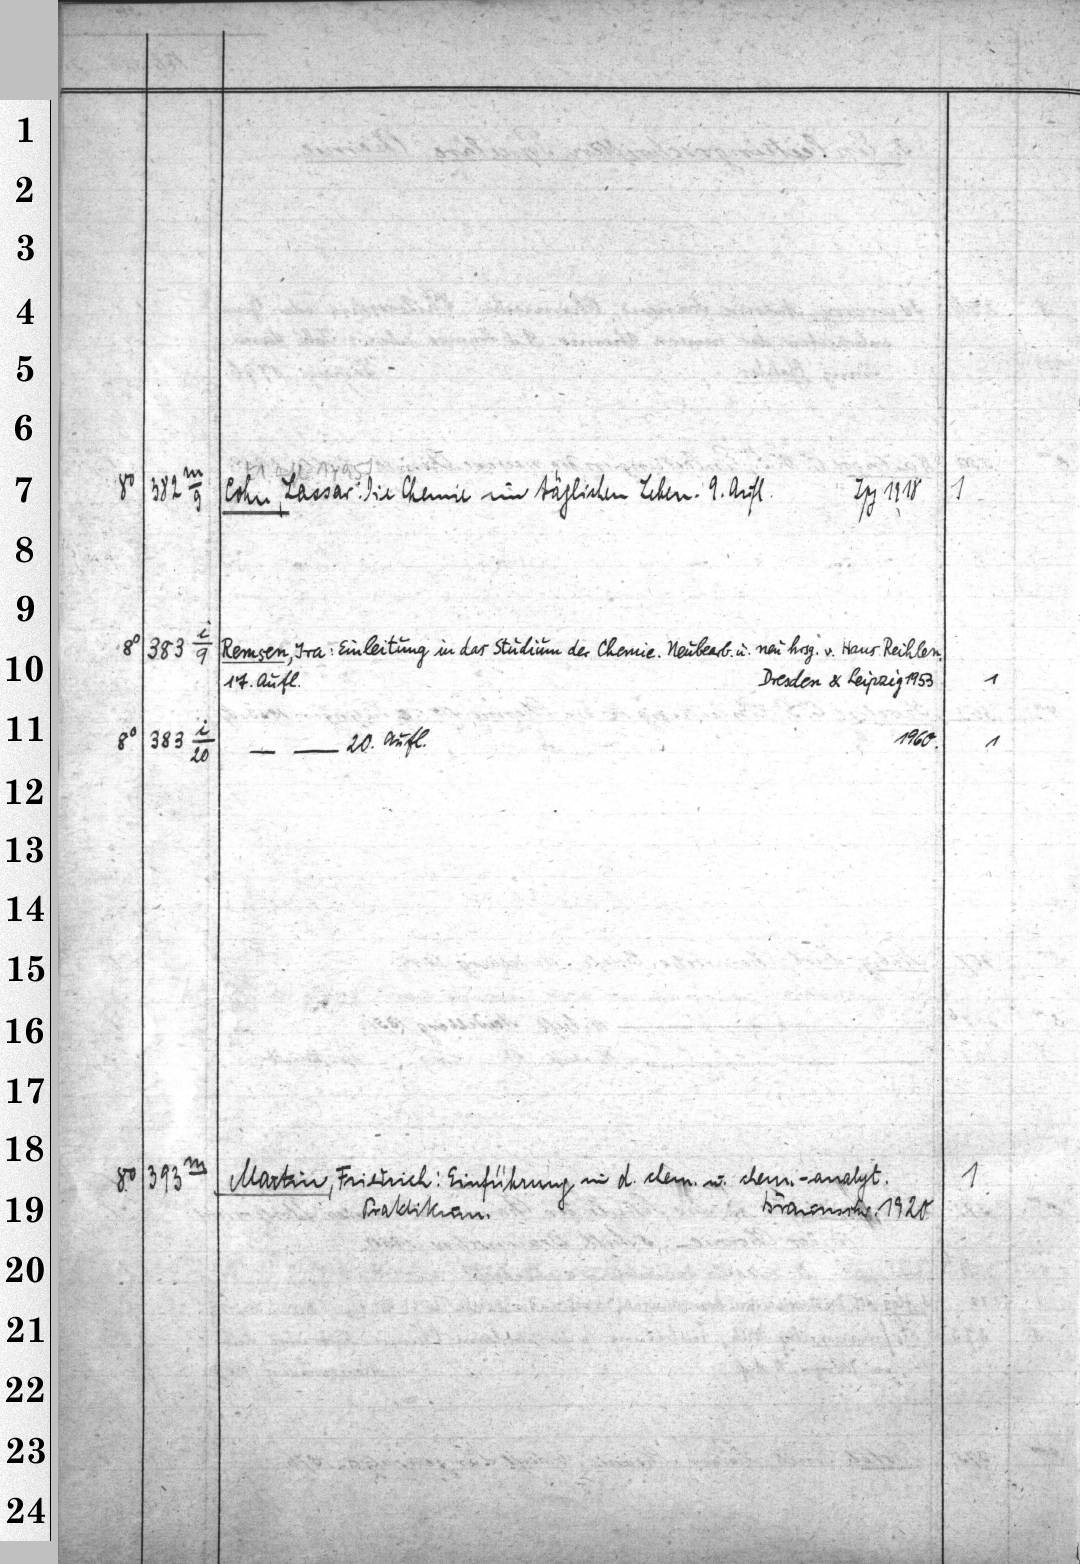 1
2
3
4
5
6
7 8° 382 m/9 Cohn, Lassar: Die Chemie im täglichen Leben. 9. Aufl. Lpg 1918 1
8
9
8° 383 i/9 Remsen, Ira: Einleitung in das Studium der Chemie. Neubearb. u. neu hrsg. v. Hans Reihlen.
10 17. Aufl. Dresden & Leipzig 1953 1
11 8° 383 i/20 — — 20. Aufl. 1960. 1
12
13
14
15
16
17
18
8° 393 m Martin, Friedrich: Einführung in d. chem. u. chem.-analyt. 1
19 Praktikum. Braunschw. 1920
20
21
22
23
24